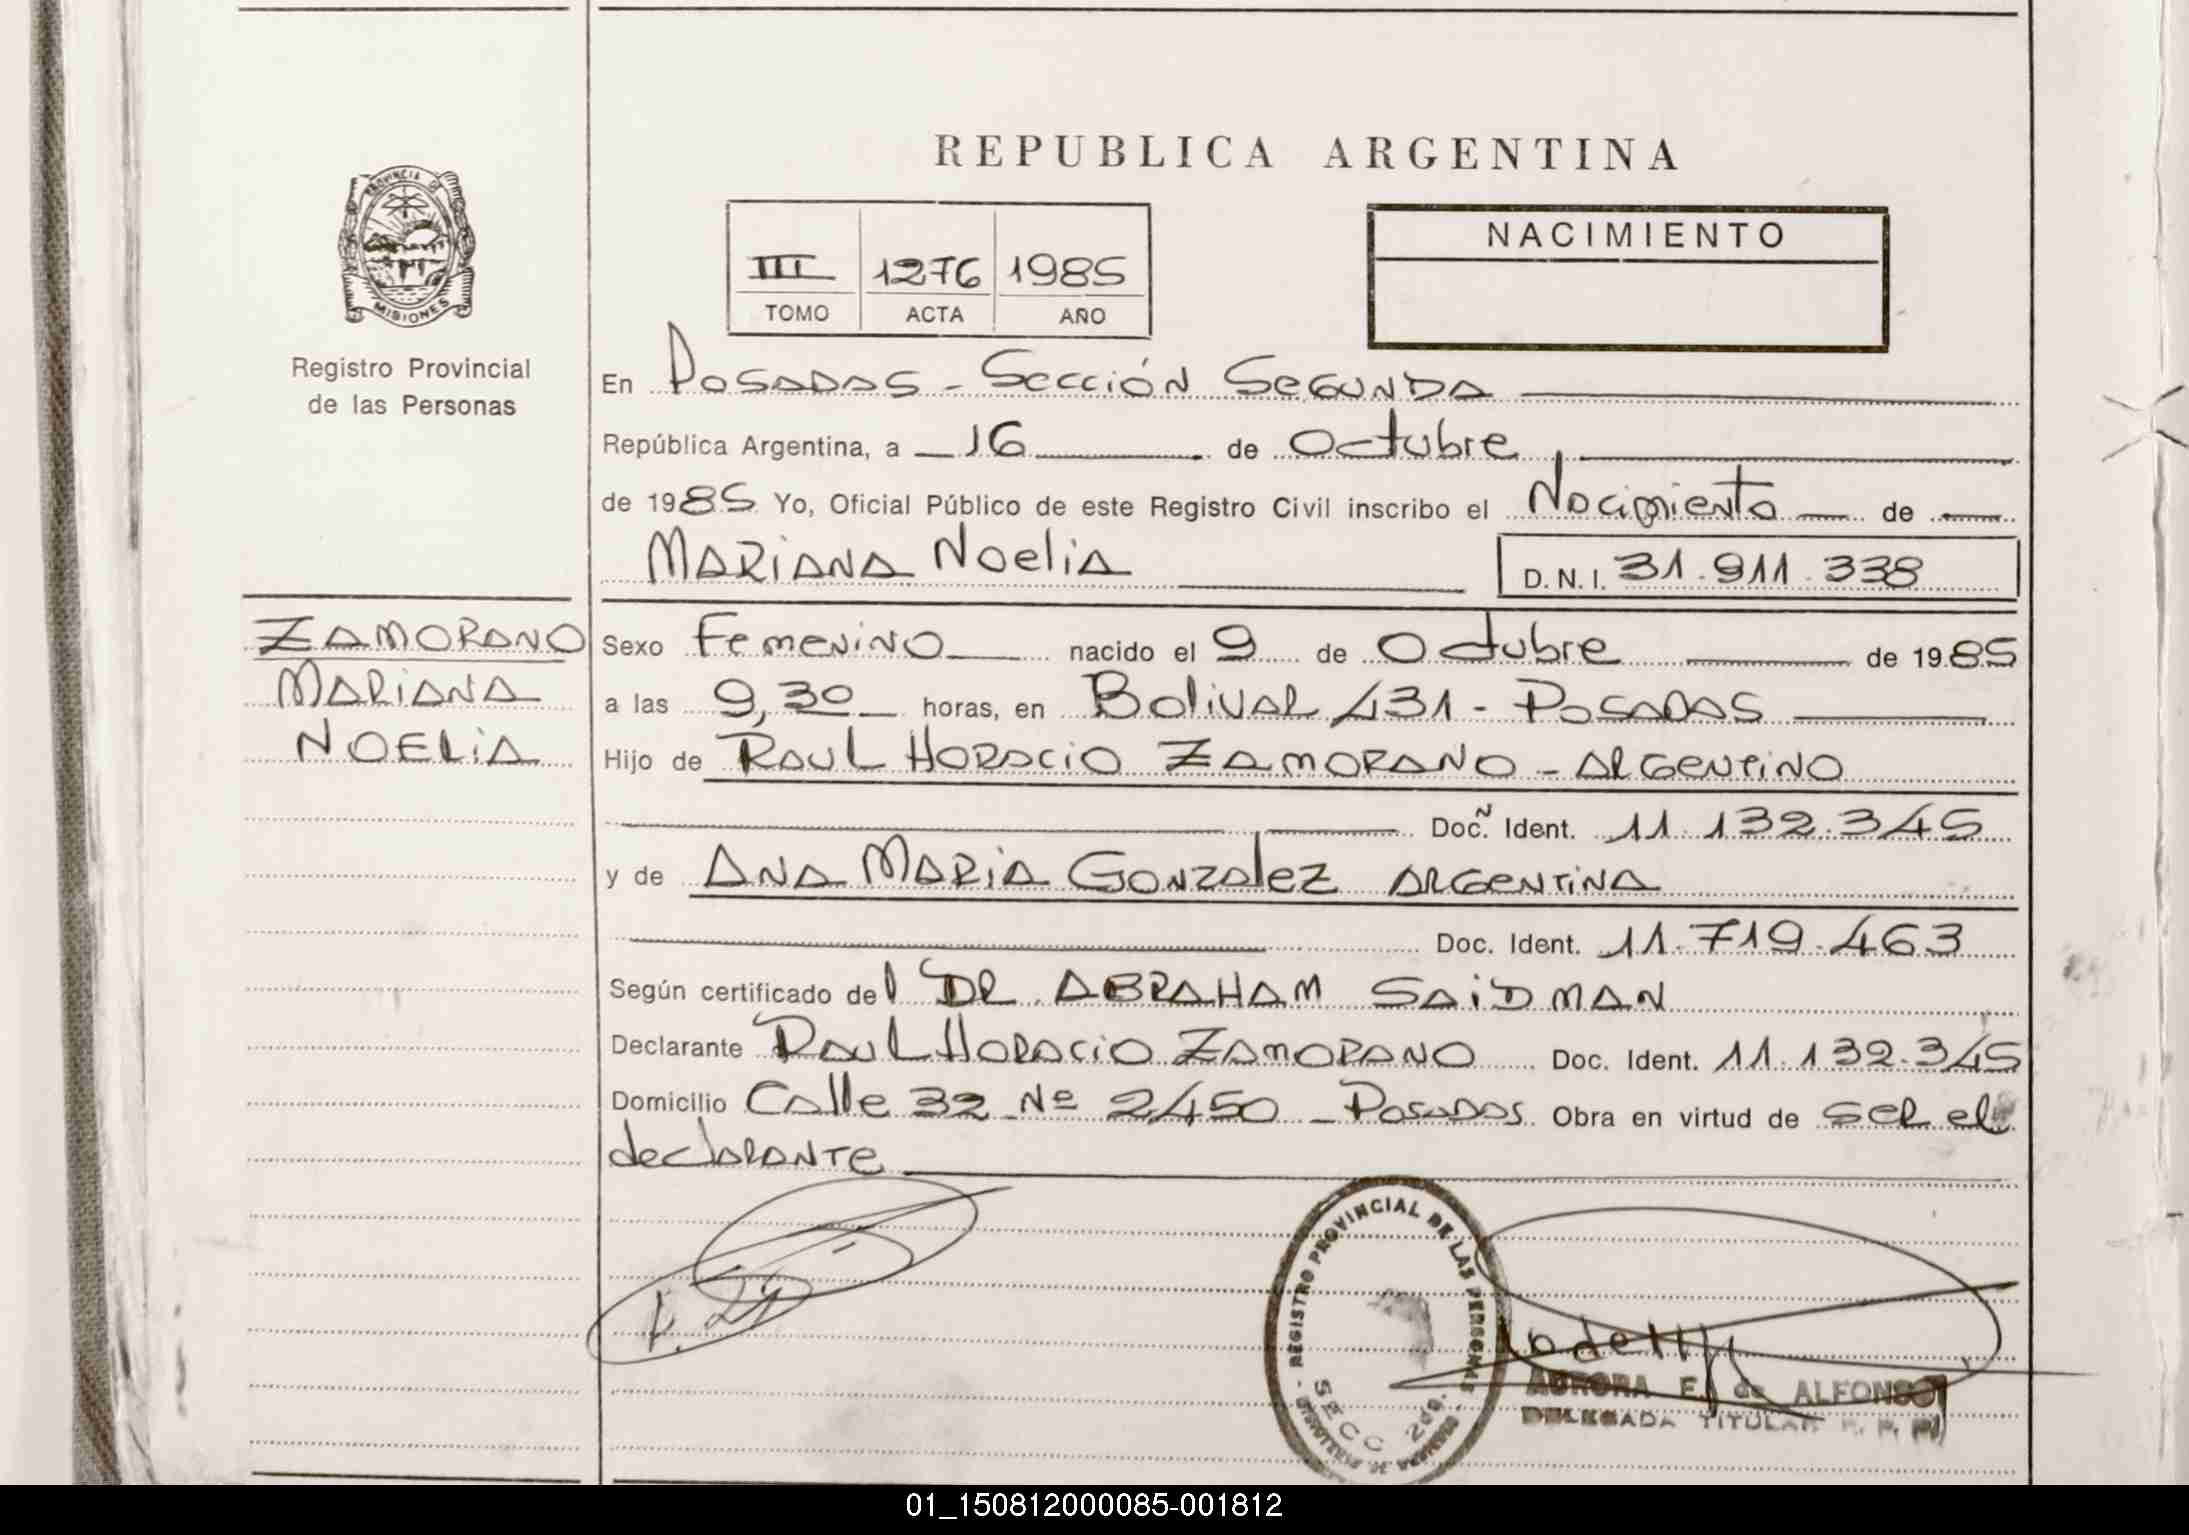 REPUBLICA ARGENTINA
PROVINCIA DE
MISIONES
Registro Provincial
de las Personas
III 1276 1985
TOMO ACTA AÑO
NACIMIENTO
En Posadas - Sección Segunda
República Argentina, a 16 de Octubre
de 1985 Yo, Oficial Público de este Registro Civil inscribo el Nacimiento de
Mariana Noelia D. N. I. 31.911.338
ZAMORANO
MARIANA
NOELIA
Sexo Femenino nacido el 9 de Octubre de 1985
a las 9,30 horas, en Bolivar 431 - Posadas
Hijo de Raul Horacio Zamorano - Argentino
Doc. Ident. 11.132.345
y de Ana Maria Gonzalez Argentina
Doc. Ident. 11.719.463
Según certificado del DR. ABRAHAM SAIDMAN
Declarante Raul Horacio Zamorano Doc. Ident. 11.132.345
Domicilio Calle 32 Nº 2450 - Posadas Obra en virtud de ser el
declarante
REGISTRO PROVINCIAL DE LAS PERSONAS
SECC 2da.
AURORA F. de ALFONSO
DELEGADA TITULAR R. P. P.
01_150812000085-001812